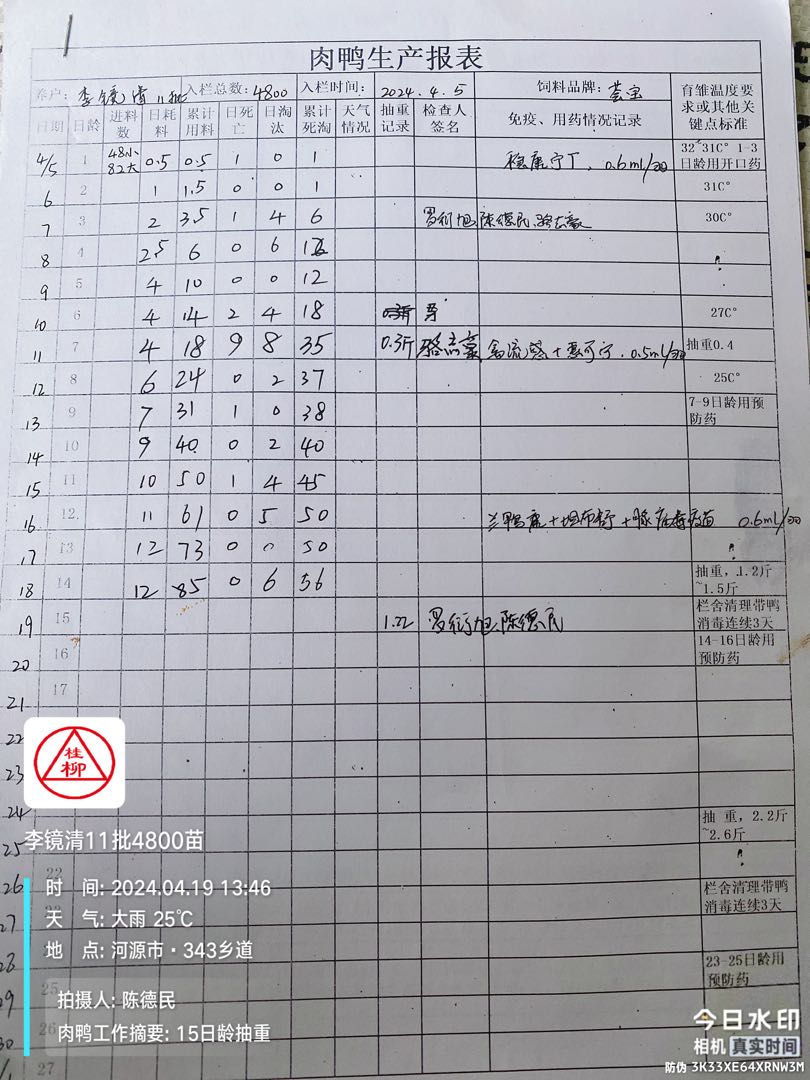 肉鸭生产报表
养户: 李镜清 11批 入栏总数: 4800 入栏时间: 2024.4.5 饲料品牌: 育雏温度要求或其他关键点标准
日期 日龄 进料数 日耗料 累计用料 日死亡 日淘汰 累计死淘 天气情况 抽重记录 检查人签名 免疫、用药情况记录
4/5 1 48小 82大 0.5 0.5 1 0 1 0.6ml/羽 32~31C° 1-3日龄用开口药
6 2 1 1.5 0 0 1 31C°
7 3 2 3.5 1 4 6 罗衍旭 陈德民 骆志豪 30C°
8 4 2.5 6 0 6 12
9 5 4 10 0 0 12
10 6 4 14 2 4 18 27C°
11 7 4 18 9 8 35 0.3斤 骆志豪 禽流感+ 0.5ml/羽 抽重0.4
12 8 6 24 0 2 37 25C°
13 9 7 31 1 0 38 7-9日龄用预防药
14 10 9 40 0 2 40
15 11 10 50 1 4 45
16 12 11 61 0 5 50 0.6ml/羽
17 13 12 73 0 0 50
18 14 12 85 0 6 56 抽重,1.2斤~1.5斤
19 15 1.22 罗衍旭 陈德民 栏舍清理带鸭消毒连续3天
20 16 14-16日龄用预防药
21 17
22
23
24
25 抽 重,2.2斤~2.6斤
26 22 栏舍清理带鸭消毒连续3天
27
28 23-25日龄用预防药
29 25
30 26
27
桂柳
李镜清11批4800苗
时 间: 2024.04.19 13:46
天 气: 大雨 25℃
地 点: 河源市·343乡道
拍摄人: 陈德民
肉鸭工作摘要: 15日龄抽重
今日水印
相机 真实时间
防伪 3K33XE64XRNW3M